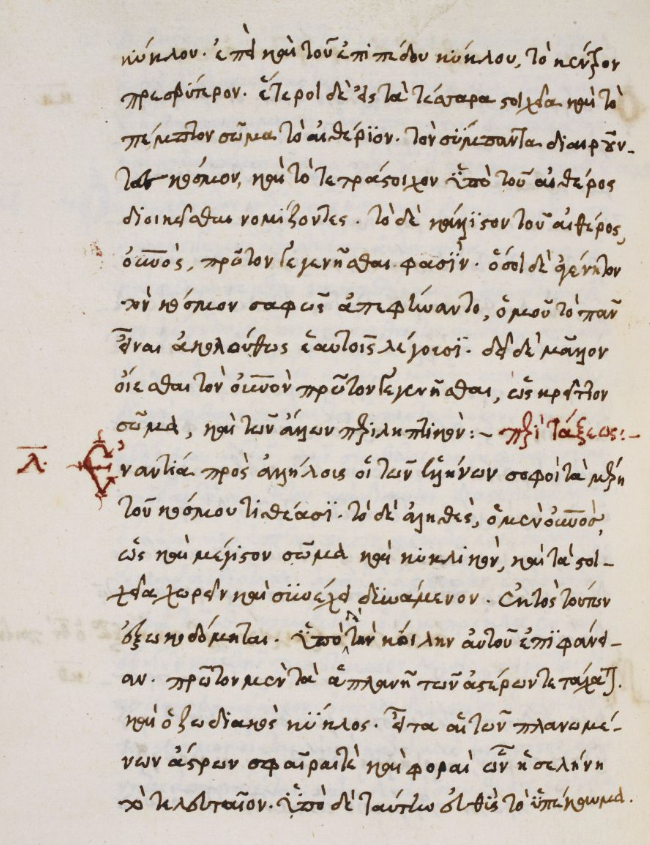 κύκλου· ἐπεὶ καὶ τοῦ ἐπιπέδου κύκλου, τὸ κέντρον
πρεσβύτερον· ἕτεροι δὲ εἰς τὰ τέσσαρα στοιχεῖα καὶ τὸ
πέμπτον σῶμα τὸ αἰθέριον· τὸν σύμπαντα διαιροῦν-
τες κόσμον, καὶ τὸ τετράστοιχον ὑπὸ τοῦ αἰθέρος
διοικεῖσθαι νομίζοντες· τὸ δὲ κάλλιστον τοῦ αἰθέρος,
οὐρανὸς, πρῶτον γεγενῆσθαι φασὶν· ὅσοι δὲ ἀγένητον
τὸν κόσμον σαφῶς ἀπεφήναντο, ὁμοῦ τὸ πᾶν
εἶναι ἀκολούθως ἑαυτοῖς λέγουσι· δεῖ δὲ μᾶλλον
οἴεσθαι τὸν οὐρανὸν πρῶτον γεγενῆσθαι, ὡς κρεῖττον
σῶμα, καὶ τῶν ἄλλων περιληπτικὸν:~ περὶ τάξεως:~
λ. Ἐναντία πρὸς ἀλλήλοις οἱ τῶν ἑλλήνων σοφοὶ τὰ μέρη
τοῦ κόσμου τιθέασι· τὸ δὲ ἀληθὲς, ὁ μὲν οὐρανὸς,
ὡς καὶ μέγιστον σῶμα καὶ κυκλικὸν, καὶ τὰ στοι-
χεῖα χωρεῖν καὶ συνέχειν δυνάμενον· ἐκτὸς τούτων
ἐξωκοδόμηται· ὑπὸ τὴν κοίλην αὐτοῦ ἐπιφάνει-
αν· πρῶτον μὲν τὰ ἀπλανῆ τῶν ἀστέρων τετάχαται.
καὶ ὁ ζωδιακὸς κύκλος· εἶτα αἱ τῶν πλανωμέ-
νων ἄστρων σφαῖραι τὲ καὶ φοραὶ ὧν ἡ σελήνη
τὸ τελευταῖον· ὑπὸ δὲ ταύτην εὐθὺς τὸ ὑπέκκαυμα.